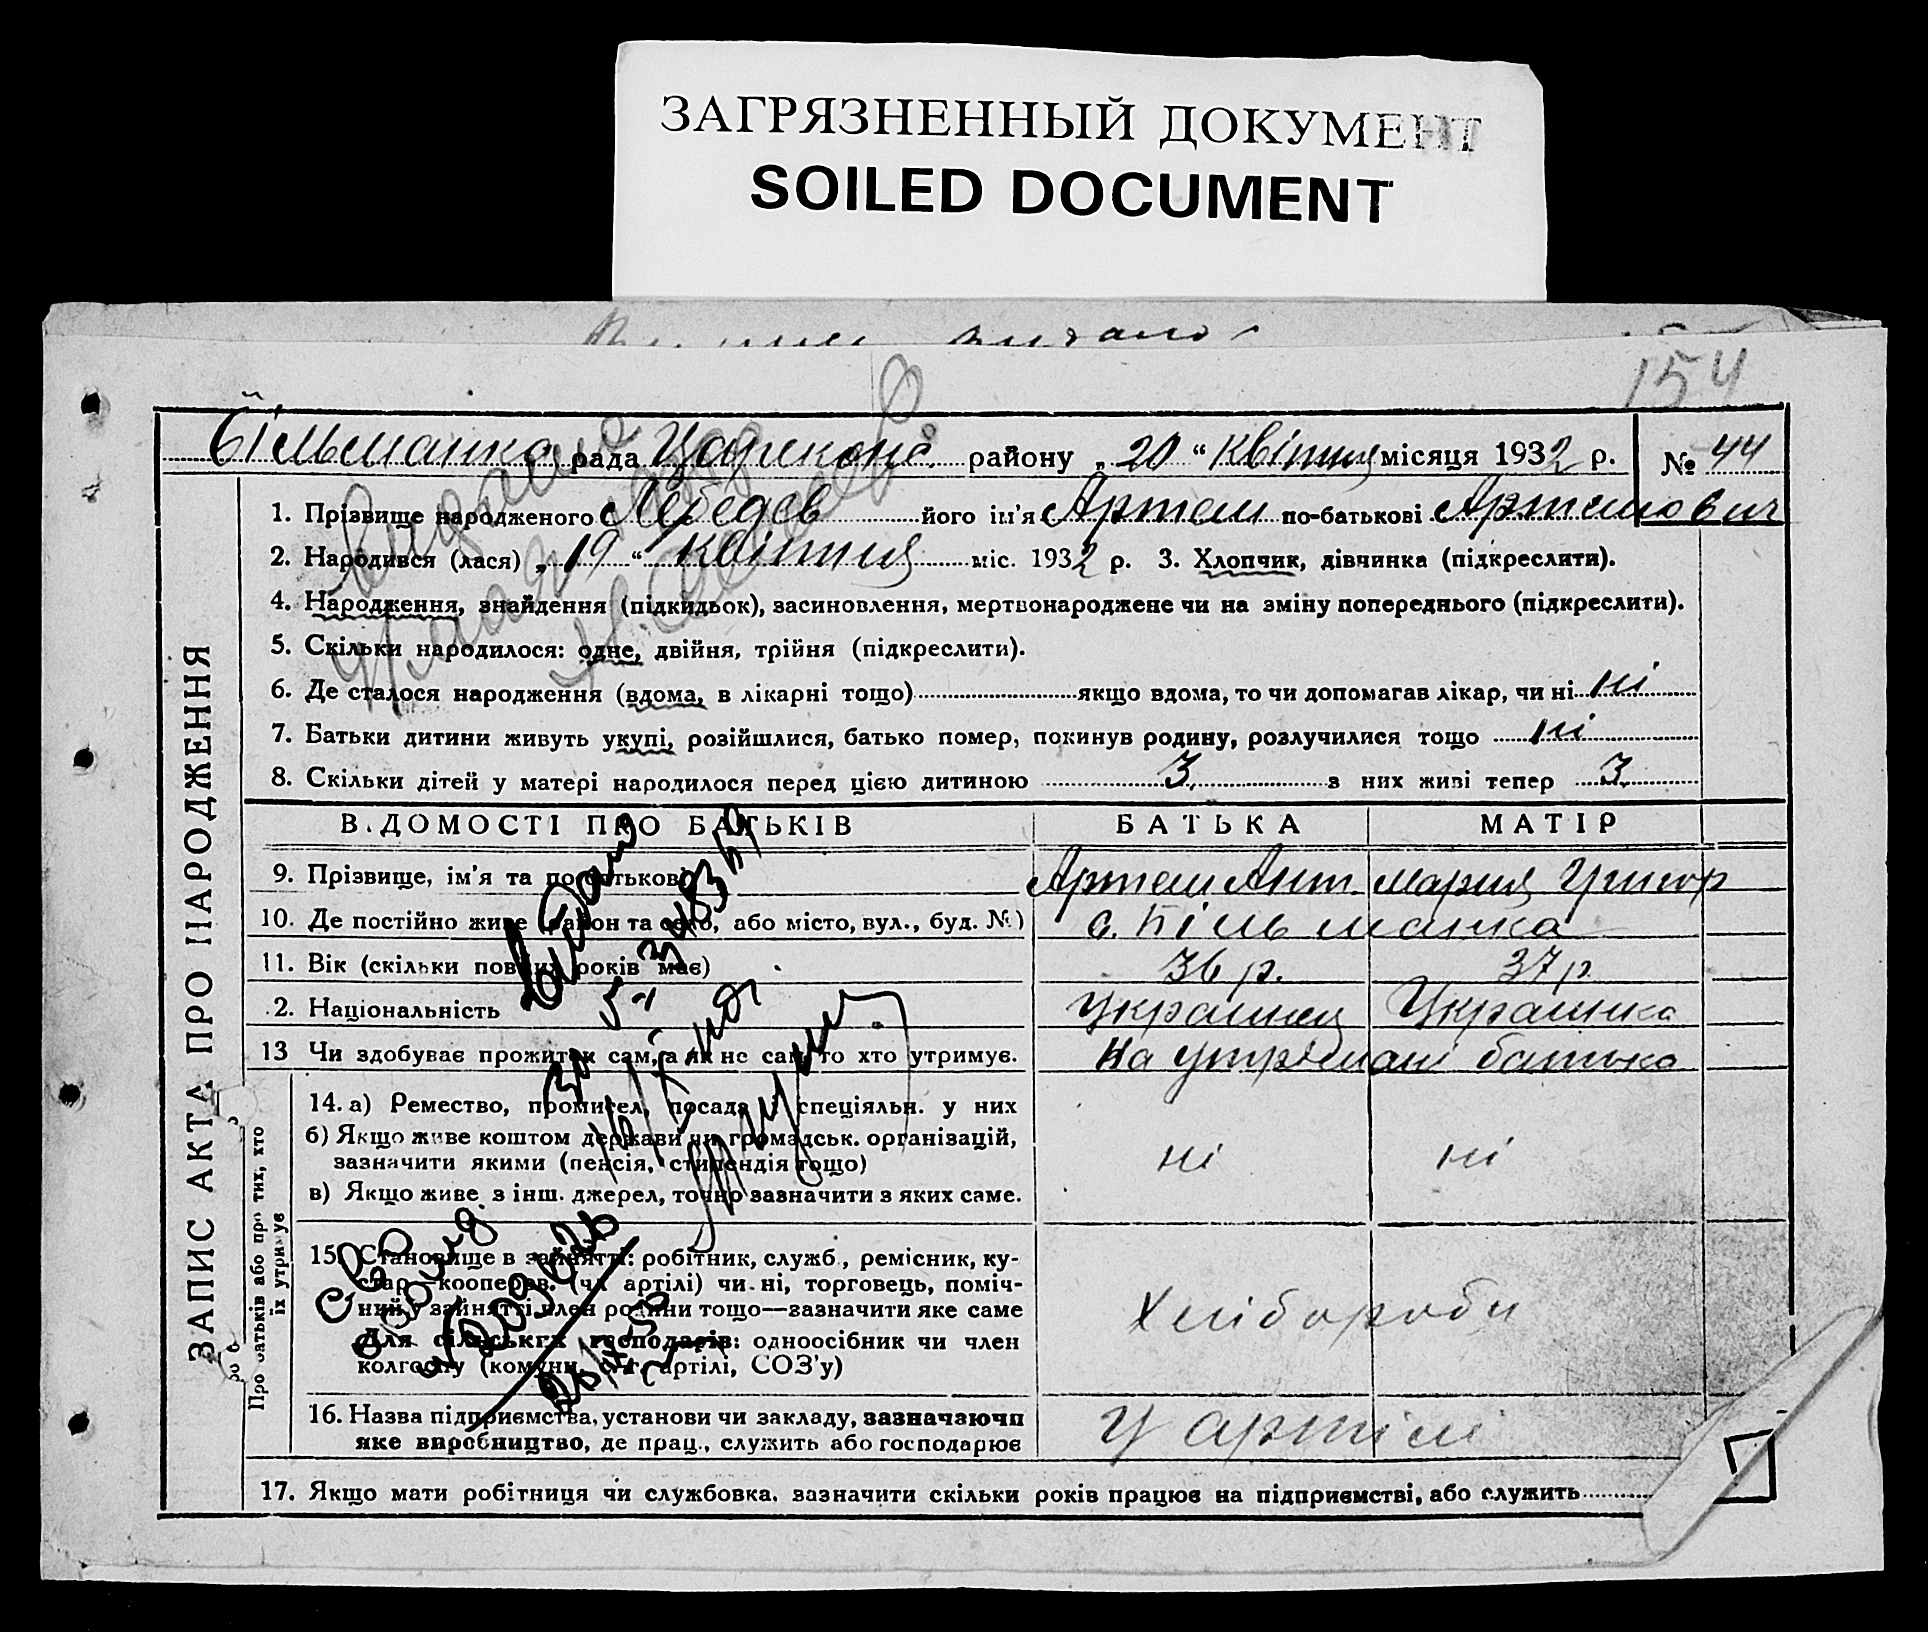 ЗАГРЯЗНЕННЫЙ ДОКУМЕНТ
SOILED DOCUMENT
154
Більманка рада Царекона району „20“ Квітня місяця 1932 р. № 44
1. Прізвище народженого Лебедєв його ім'я Артем по-батькові Артемович
2. Народився (лася) „19“ квітня міс. 1932 р. 3. Хлопчик, дівчинка (підкреслити).
4. Народження, знайдення (підкидьок), засиновлення, мертвонароджене чи на зміну попереднього (підкреслити).
5. Скільки народилося: одне, двійня, трійня (підкреслити).
6. Де сталося народження (вдома, в лікарні тощо) якщо вдома, то чи допомагав лікар, чи ні ні
7. Батьки дитини живуть укупі, розійшлися, батько помер, покинув родину, розлучилися тощо ні
8. Скільки дітей у матері народилося перед цією дитиною 3 з них живі тепер 3
ЗАПИС АКТА ПРО НАРОДЖЕННЯ
В.ДОМОСТІ ПРО БАТЬКІВ БАТЬКА МАТІР
9. Прізвище, ім'я та по батькові Артем Ант. Мария Григор
10. Де постійно живе (район та село, або місто, вул., буд. №) с. Більманка
11. Вік (скільки повних років має) 36 р. 37 р
.2. Національність Українец Українка
13 Чи здобуває прожиток сам, а як не сам, то хто утримує. На утрімані батька
Про батьків або про тих, хто їх утримує
14. а) Ремество, промисел, посада і спеціяльн. у них
б) Якщо живе коштом держави чи громадськ. організацій,
зазначити якими (пенсія, стипендія тощо) ні ні
в) Якщо живе з інш. джерел, точно зазначити з яких саме.
15. Становище в зайнятті: робітник, служб., ремісник, ку-
стар—коопеpов. (чл артілі) чи ні, торговець, поміч-
ний у зайнятті член родини тощо—зазначити яке саме
Для сільських господарів: одноосібник чи член
колгоспу (комуни, с.-г. артілі, СОЗ'у)
Хлібороби
16. Назва підприємства, установи чи закладу, зазначаючи
яке виробництво, де прац., служить або господарює
У артілі
17. Якщо мати робітниця чи службовка, зазначити скільки років працює на підприємстві, або служить